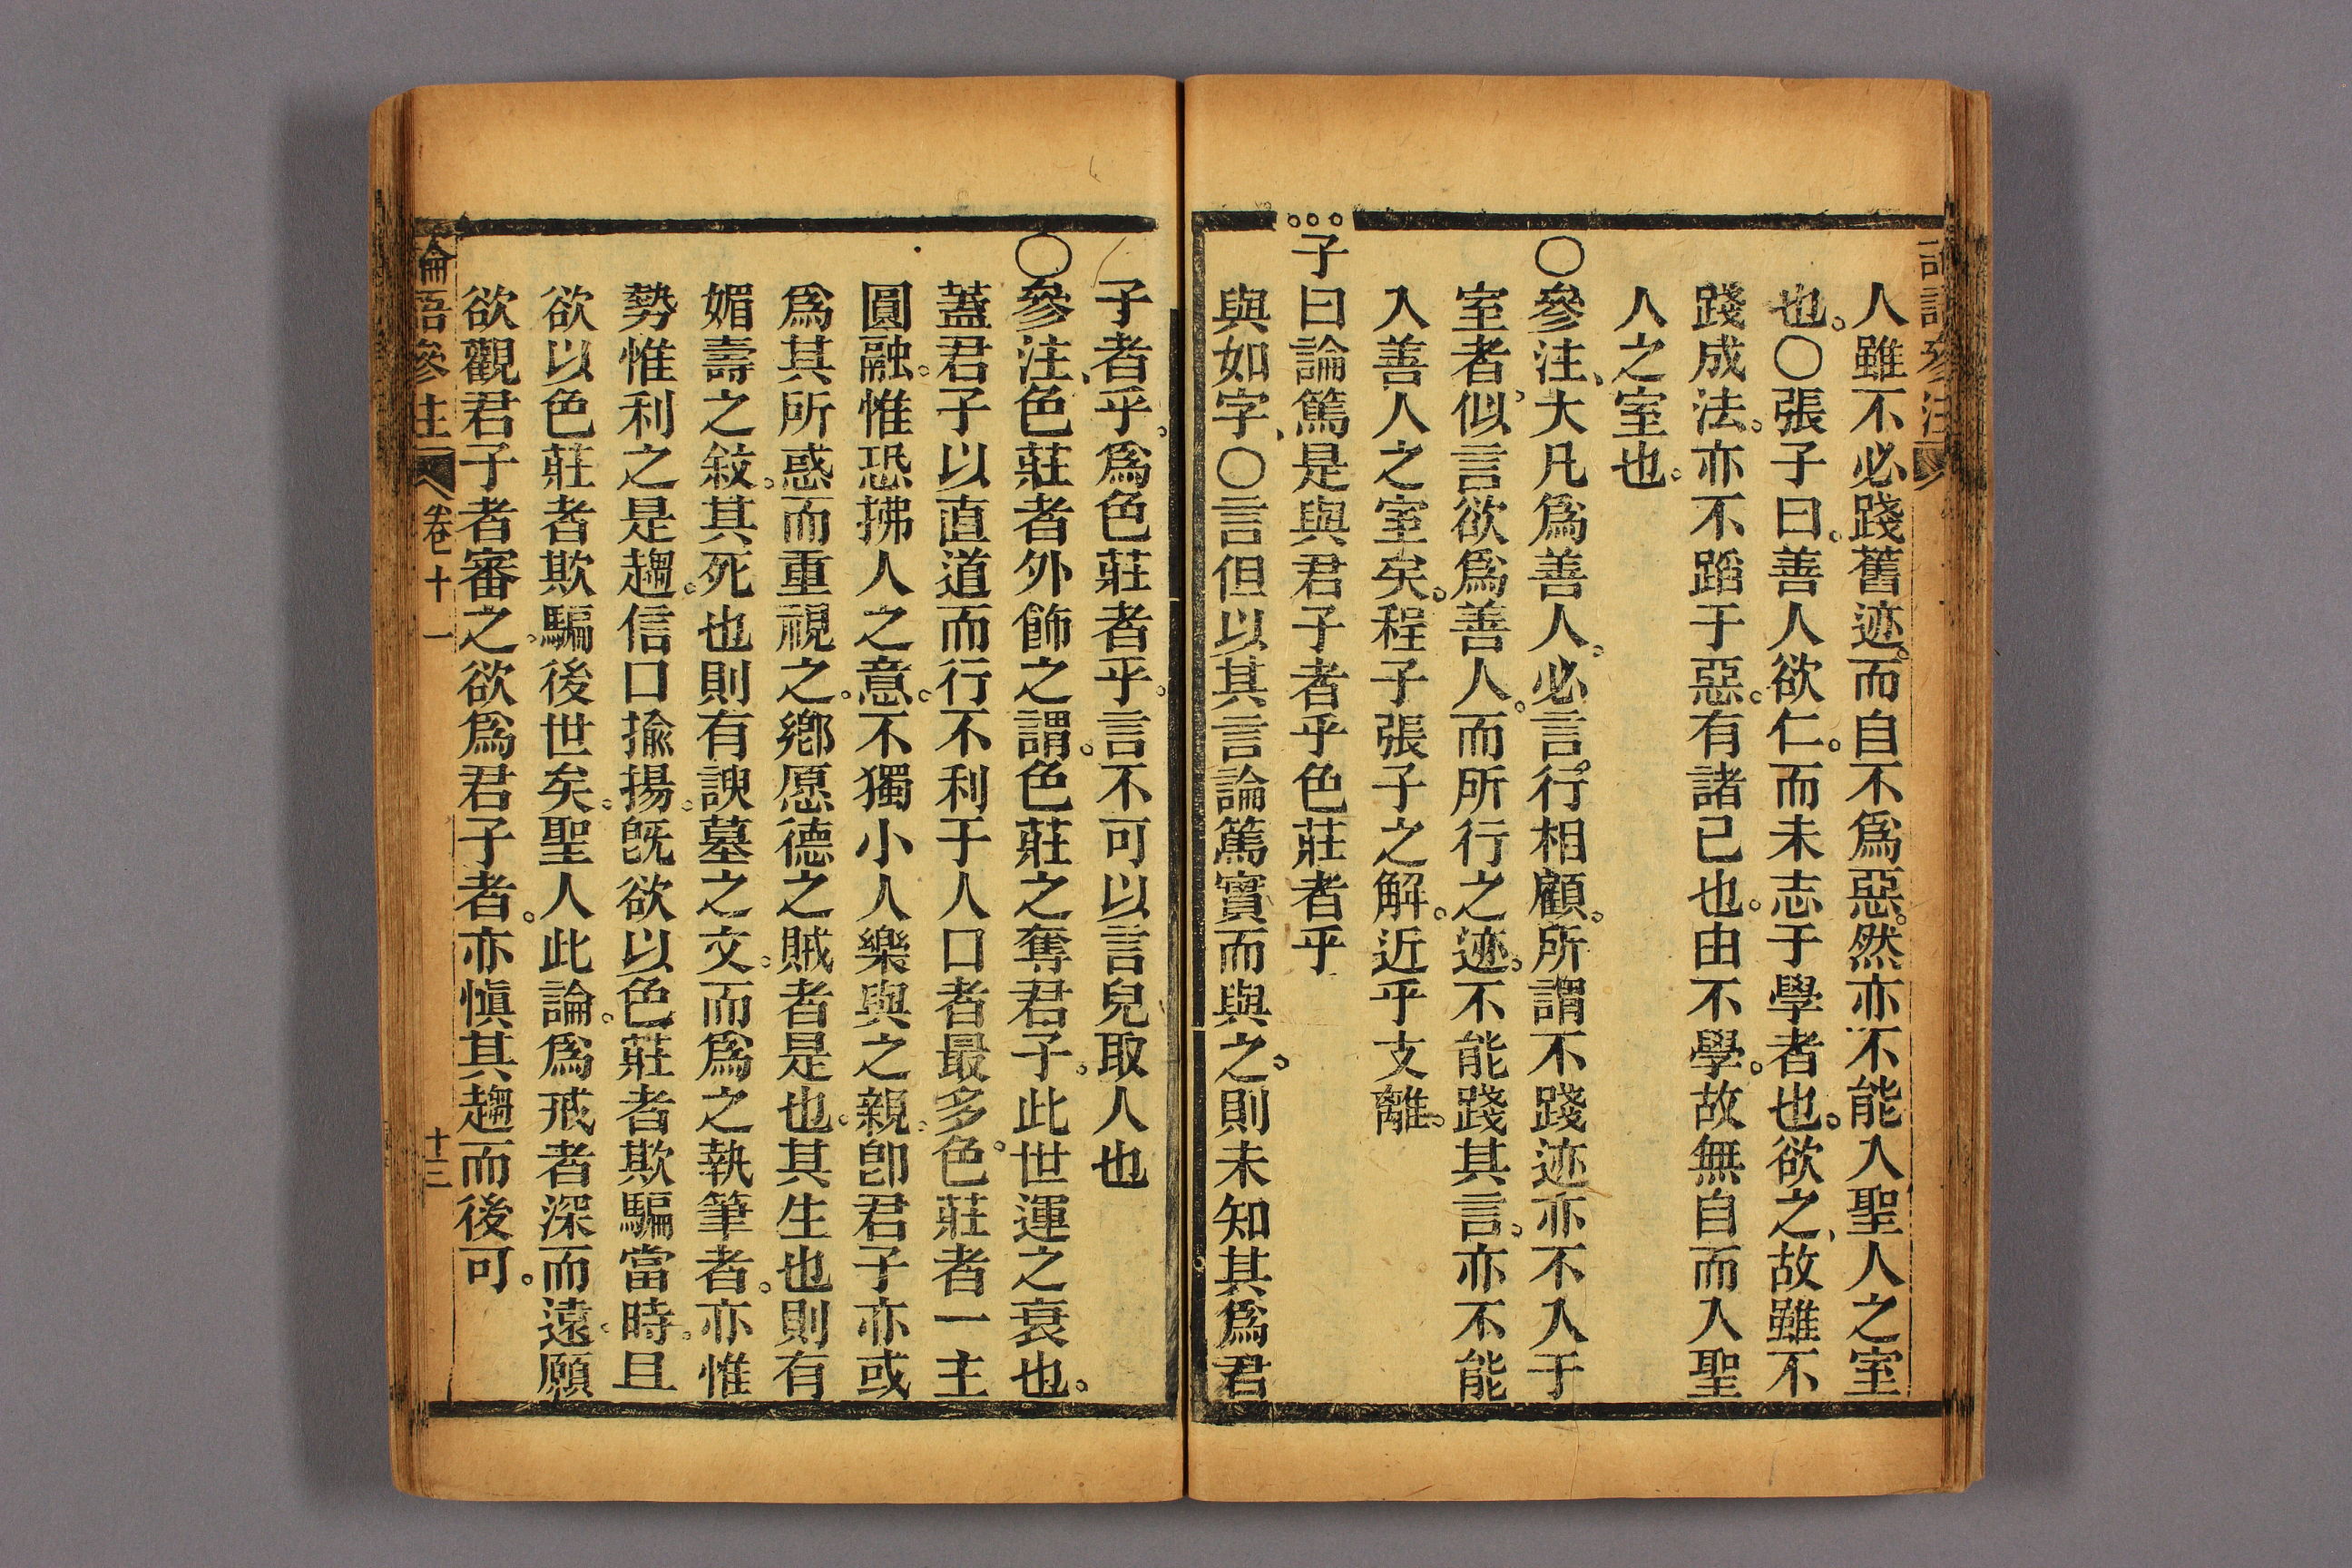 人雖不必踐舊迹。而自不爲惡。然亦不能入聖人之室
也。〇張子曰。善人欲仁。而未志于學者也。欲之、故雖不
踐成法。亦不蹈于惡。有諸己也。由不學。故無自而入聖
人之室也。
〇參注、大凡爲善人。必言行相顧。所謂不踐迹亦不入于
室者、似言欲爲善人。而所行之迹。不能踐其言。亦不能
入善人之室矣。程子張子之解。近乎支離。
子曰論篤是與君子者乎色莊者乎
與如字、〇言但以其言論篤實而與之。則未知其爲君
子者乎。爲色莊者乎。言不可以言皃取人也
〇參注、色莊者外飾之謂。色莊之奪君子。此世運之衰也。
蓋君子以直道而行不利于人口者最多。色莊者一主
圓融。惟恐拂人之意。不獨小人樂與之親。卽君子亦或
爲其所惑而重視之。鄕愿德之賊者是也。其生也則有
媚壽之敍。其死也則有諛墓之文。而爲之執筆者。亦惟
勢惟利之是趨。信口揄揚。旣欲以色莊者欺騙當時。且
欲以色莊者欺騙後世矣。聖人此論。爲戒者深而遠。願
欲觀君子者審之。欲爲君子者。亦愼其趨而後可。
論語參注 卷十一 十三